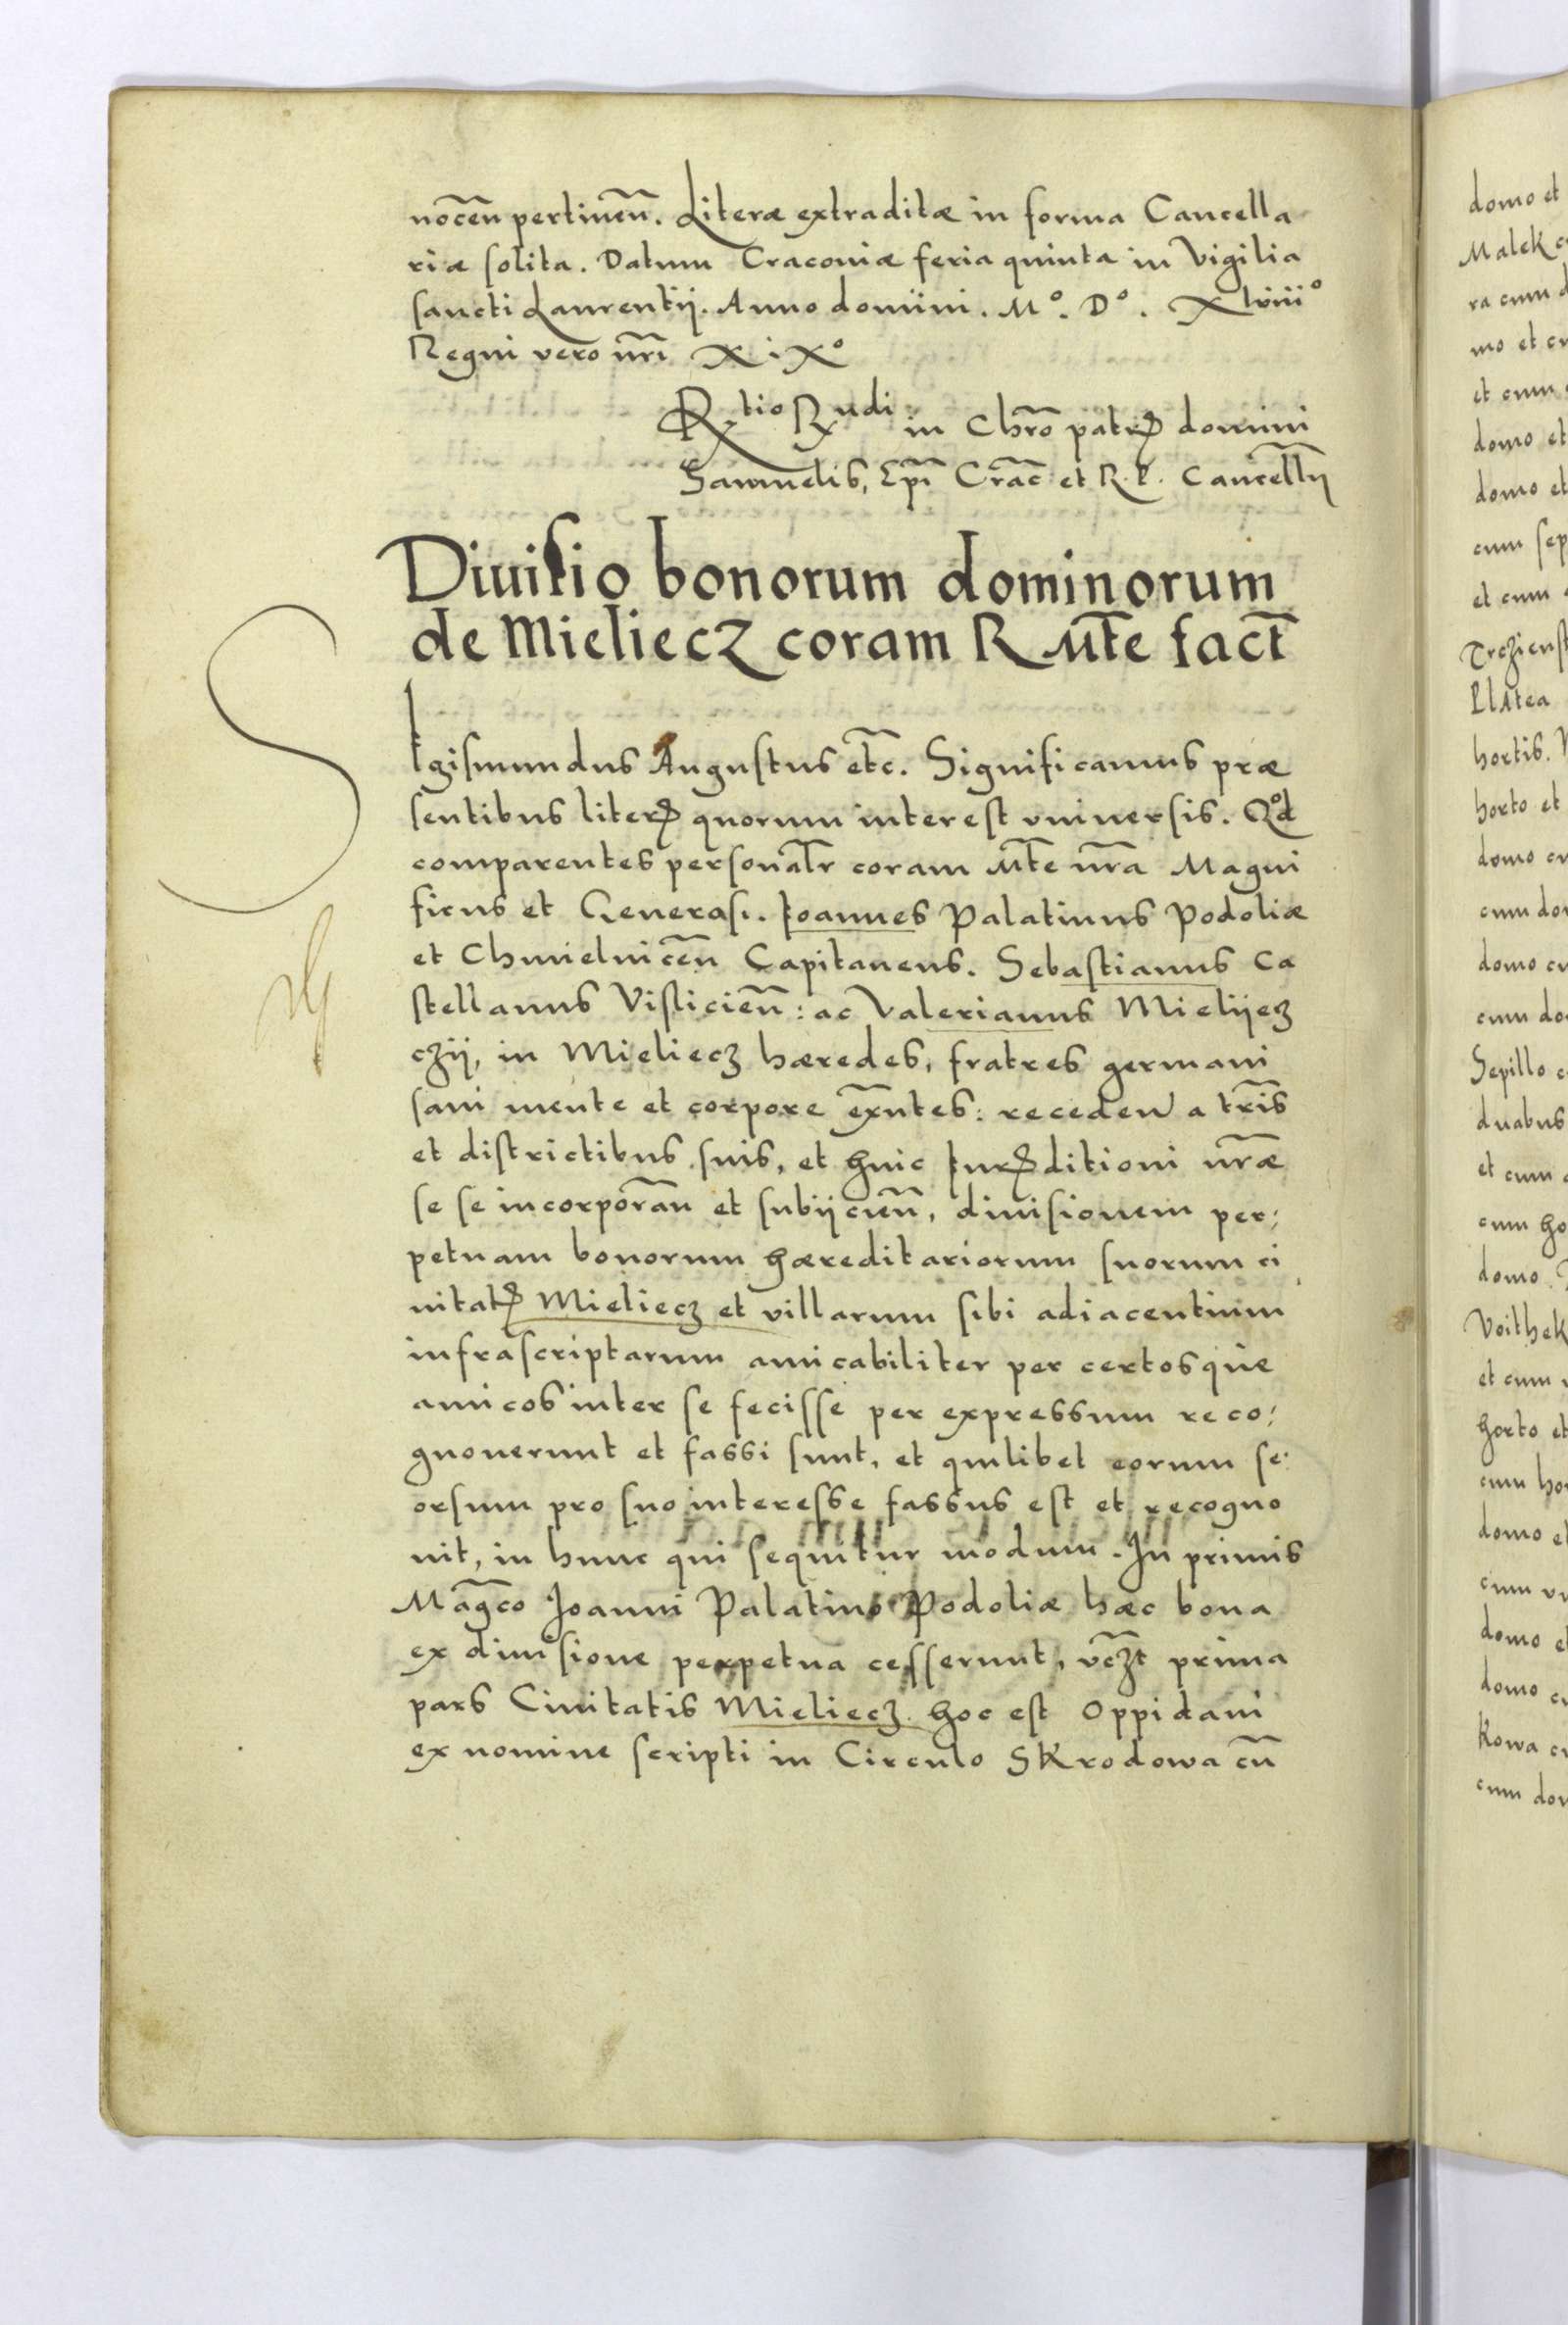 nocen̄ pertinen̄. Literæ extraditæ in forma Cancella
riæ solita. Datum Cracoviæ feria quinta in Vigilia
sancti Laurentij. Anno domini. M°. D°. Xlviii°
Regni vero nr̄i XiX°
Rtio Rudi in Chrō patrꝭ domini
Samuelis, Epī Crac̄ et R. P. Cancellīj
Diuisio bonorum dominorum
de Mieliecz coram R Mt̄e fact̄
SIgismundus Augustus etc̄. Significamus præ
sentibus literꝭ quorum interest vniuersis. Qod
comparentes personalr̄ coram Mt̄e nr̄a Magni
ficus et Generosi. Joannes Palatinus Podoliæ
et Chmielnicen̄ Capitaneus. Sebastianus Ca
stellanus Vislicien̄: ac Valerianus Mielijecz
czij, in Mieliecz hæredes, fratres germani
sani mente et corpore exn̄tes: receden̄ a tr̄is
et districtibus suis, et huic Jurꝭditioni nr̄æ
se se incorporan̄ et subijcien̄, diuisionem per:
petuam bonorum hæreditariorum suorum ci
uitatꝭ Mieliecz et villarum sibi adiacentium
infrascriptarum amicabiliter per certosque
amicos inter se fecisse per expressum reco:
gnouerunt et fassi sunt, et quilibet eorum se:
orsum pro suo interesse fassus est et recogno
uit, in hunc qui sequitur modum. In primis
Mag̅co Joanni Palatino Podoliæ hæc bona
ex diuisione perpetua cesserunt, vcz̄t prima
pars Ciuitatis Mieliecz hoc est oppidani
ex nomine scripti in Circulo Skrodowa cū
domo et
Malek
ra cum
mo et
et cum
domo et
domo et
cum sep
et cum
Trczienst
Platea
hortis.
horto et
domo
cum do
domo
cum do
Sepillo
duabus
et cum
cum ho
domo.
Voithek
et cum
horto et
cum ho
domo et
cum
domo et
domo
kowa
cum do